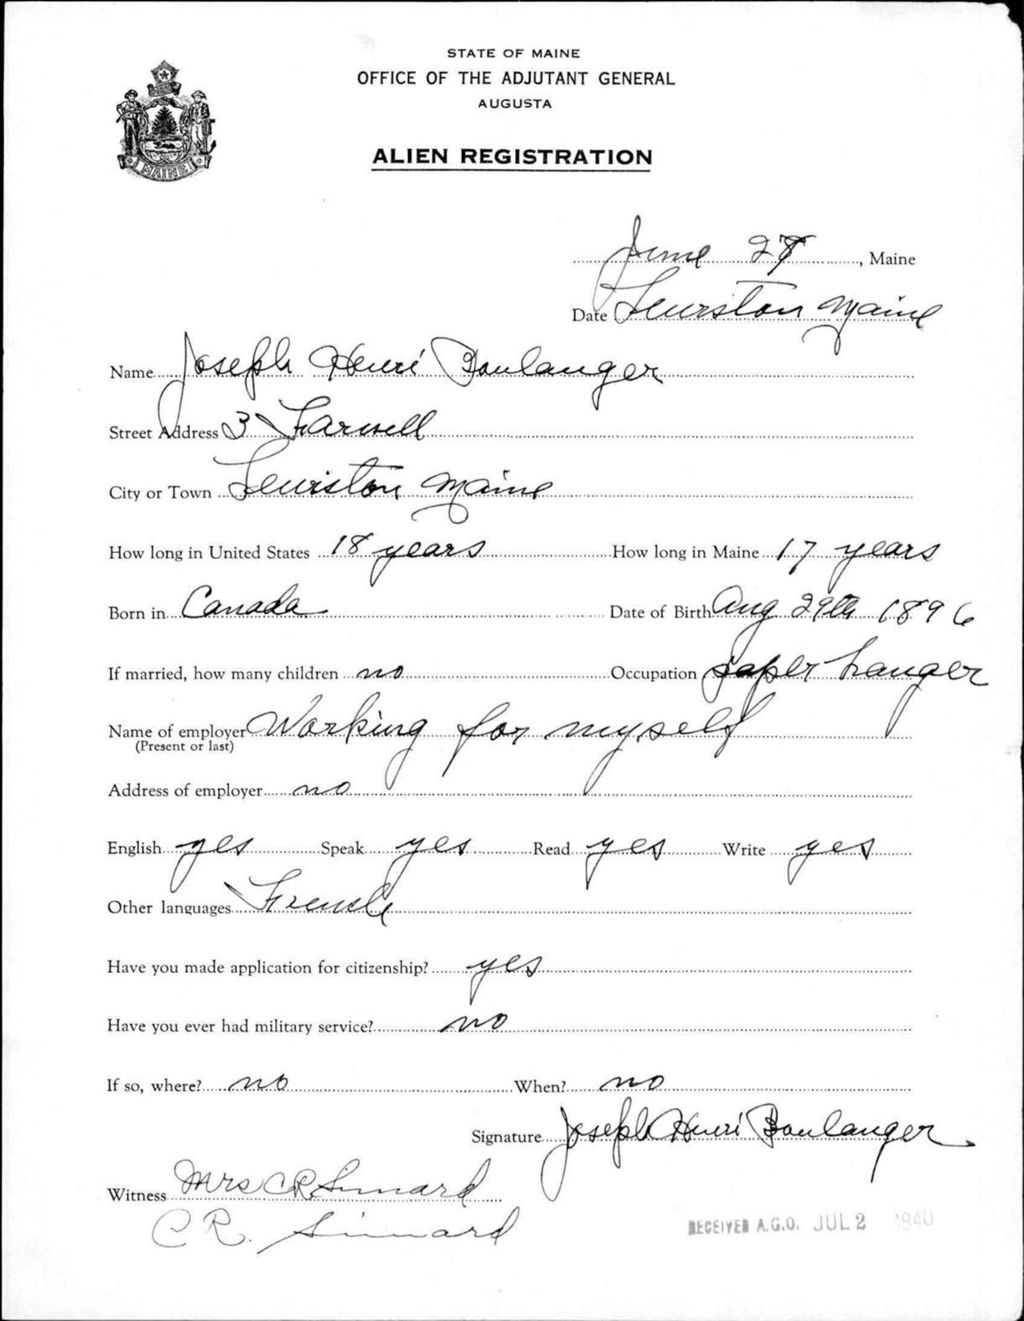 STATE OF MAINE
OFFICE OF THE ADJUTANT GENERAL
AUGUSTA
ALIEN REGISTRATION
MAINE
June 28, Maine
Date Lewiston Maine
Name Joseph Henri Boulanger
Street Address 3 Farwell
City or Town Lewiston Maine
How long in United States 18 years How long in Maine 17 years
Born in Canada Date of Birth Aug 29th 1896
If married, how many children no Occupation paper hanger
Name of employer Working for myself
(Present or last)
Address of employer no
English yes Speak yes Read yes Write yes
Other languages French
Have you made application for citizenship? yes
Have you ever had military service? no
If so, where? no When? no
Signature Joseph Henri Boulanger
Witness Mrs C R Simard
C R. Simard
RECEIVED A.G.O. JUL 2 1940